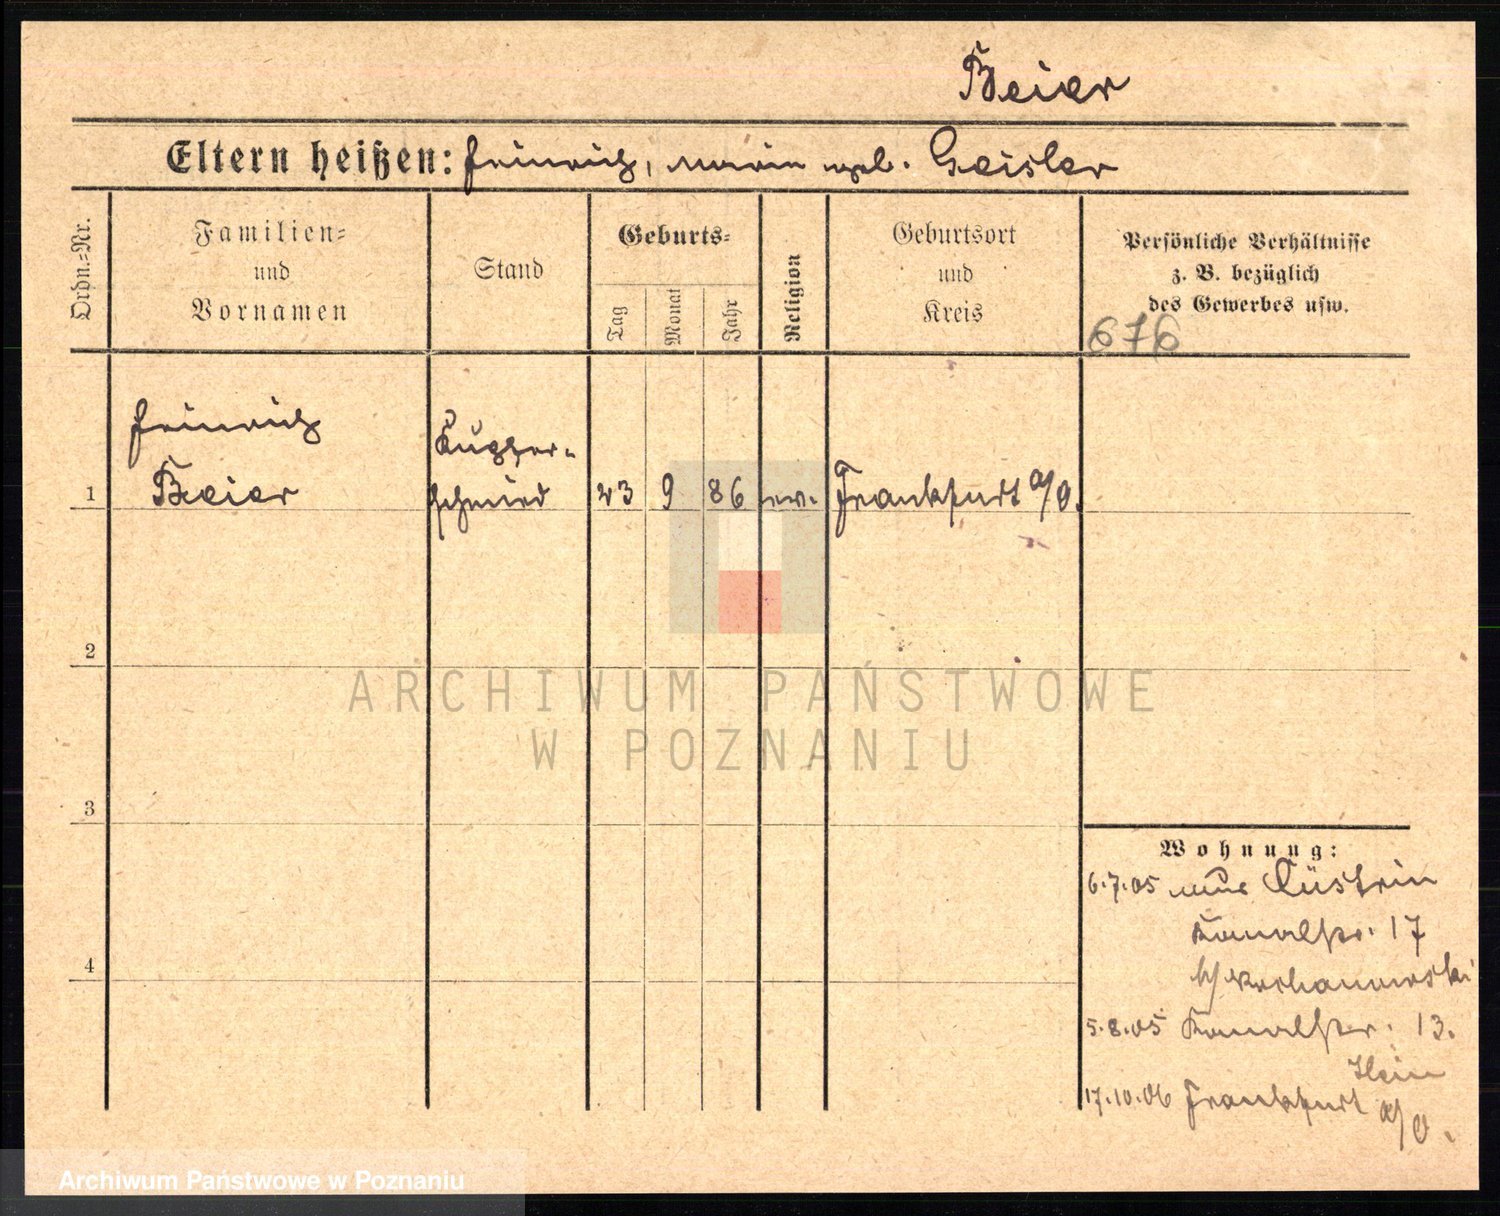 Beier
Eltern heißen: Heinrich, Marie geb. Geisler
Ordn.-Nr.
Familien-
und
Vornamen
Stand
Geburts-
Tag
Monat
Jahr
Religion
Geburtsort
und
Kreis
Persönliche Verhältnisse
z. B. bezüglich
des Gewerbes usw.
676
Heinrich
Beier
Kupfer-
schmied
1
23 9 86 ev. Frankfurt a/O.
2
ARCHIWUM PAŃSTWOWE
W POZNANIU
3
Wohnung:
6.7.05 aus Cüstrin
Kanalstr. 17
b/ Kochanowski
4
5.8.05 Kanalstr. 13.
17.10.06 Frankfurt a/O.
Archiwum Państwowe w Poznaniu